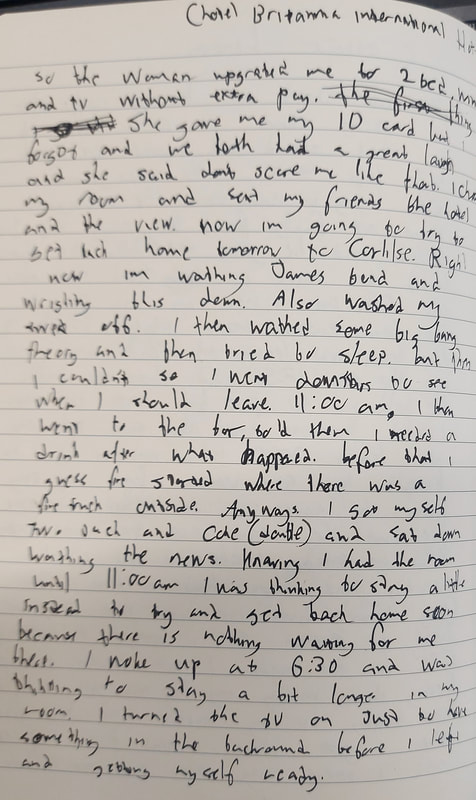 (hotel Britannia International Ho
so the woman upgraded me to 2 bed,
and tv without extra pay. the first thing
She gave me my ID card but i
forgot and we both had a great laugh
and she said dont scare me like that. I
my room and sent my friends the hotel
and the view. now im going to try to
get back home tomorrow to Carlilse. Right
now im wathing James bond and
wrighting this down. Also washed my
off. I then wathed some big bang
theory and then tried to sleep. but then
I couldn't so I went downstairs to see
when I should leave. 11:00 am, I then
went to the bar, told them I needed a
drink after what happaed. before that I
guess fire started where there was a
fire truck outside. Anyways. I got myself
two and Coke (double) and sat down
wathing the news. Knowing I had the room
until 11:00am I was thinking to stay a little
instead to try and get back home soon
because there is nothing waiting for me
there. I woke up at 6:30 and was
thinking to stay a bit longer in my
room. I turned the tv on Just to have
something in the backround before I left
and getting myself ready.